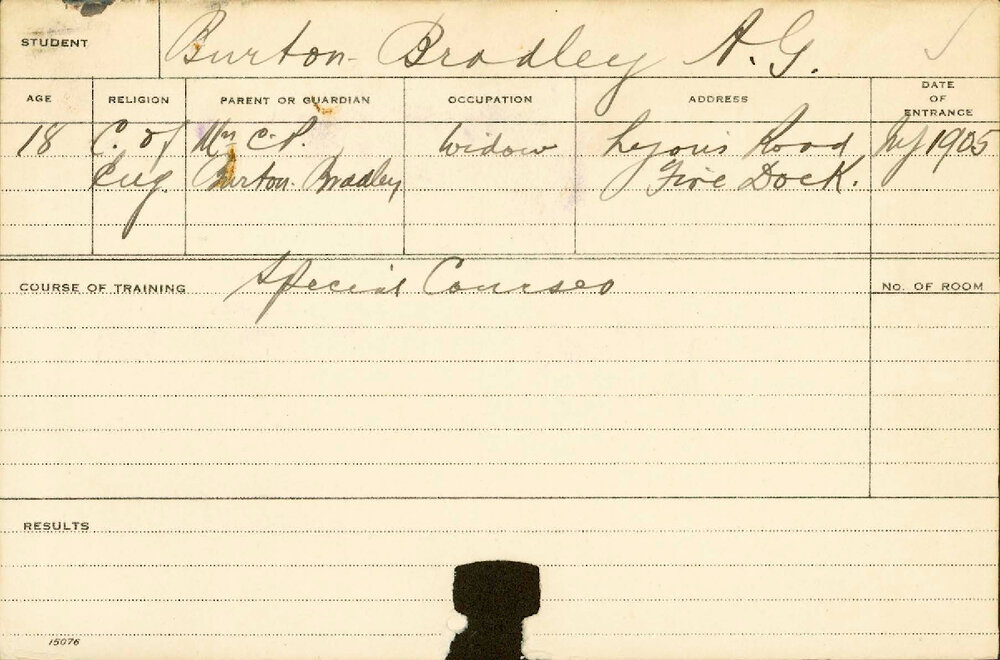 STUDENT Burton-Bradley A.G.
AGE RELIGION PARENT OR GUARDIAN OCCUPATION ADDRESS DATE OF ENTRANCE
18 C. of Mrs C.P. Widow Lyons Road July 1905
Eng. Burton-Bradley Five Dock.
COURSE OF TRAINING Special Courses No. OF ROOM
RESULTS
15076